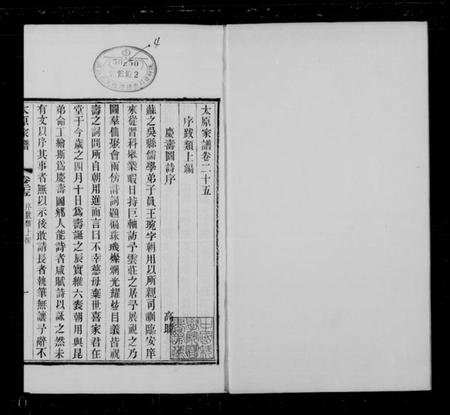 4
太原家譜卷二十五
序跋類上編
慶壽圖詩序
高
蘇之吳縣儒學弟子員王琬字朝用以所親司訓臨安庠
來從習科舉業暇日持巨軸訪予雲莊之居予展視之乃
圖羣仙聚會兩傍詩詞題徧珠璣燦爛光耀於目義皆祝
壽之詞問所自朝用進而言曰不幸慈母棄世喜家君在
堂于今歲之四月十日爲壽誕之辰實維六袠朝用與昆
弟命工繪斯爲慶壽圖鄉人能詩者咸賦詩以詠之然未
有文以序其事者無以示後敢請長者執筆無讓予辭不
太原家譜
卷二十五
序跋類上編
一